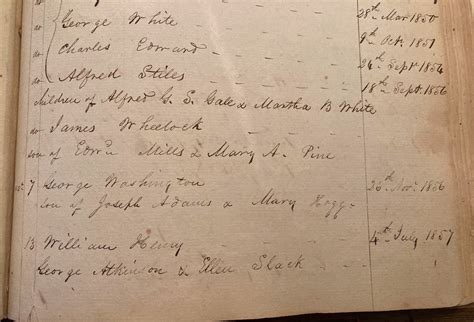 do George White - - 28th Mar 1850
do Charles Edward - - 9th Oct. 1851
do Alfred Stiles - - 24th Sept 1854
children of Alfred G. S. Gale & Martha B White 18th Sept. 1856
do James Wheelock
son of Edwd Mills & Mary A. Pine
7 George Washington - - 26th Novr 1856
son of Joseph Adams & Mary Hogg -
13 William Henry - - 4th July 1857
George Atkinson & Ellen Slack - -